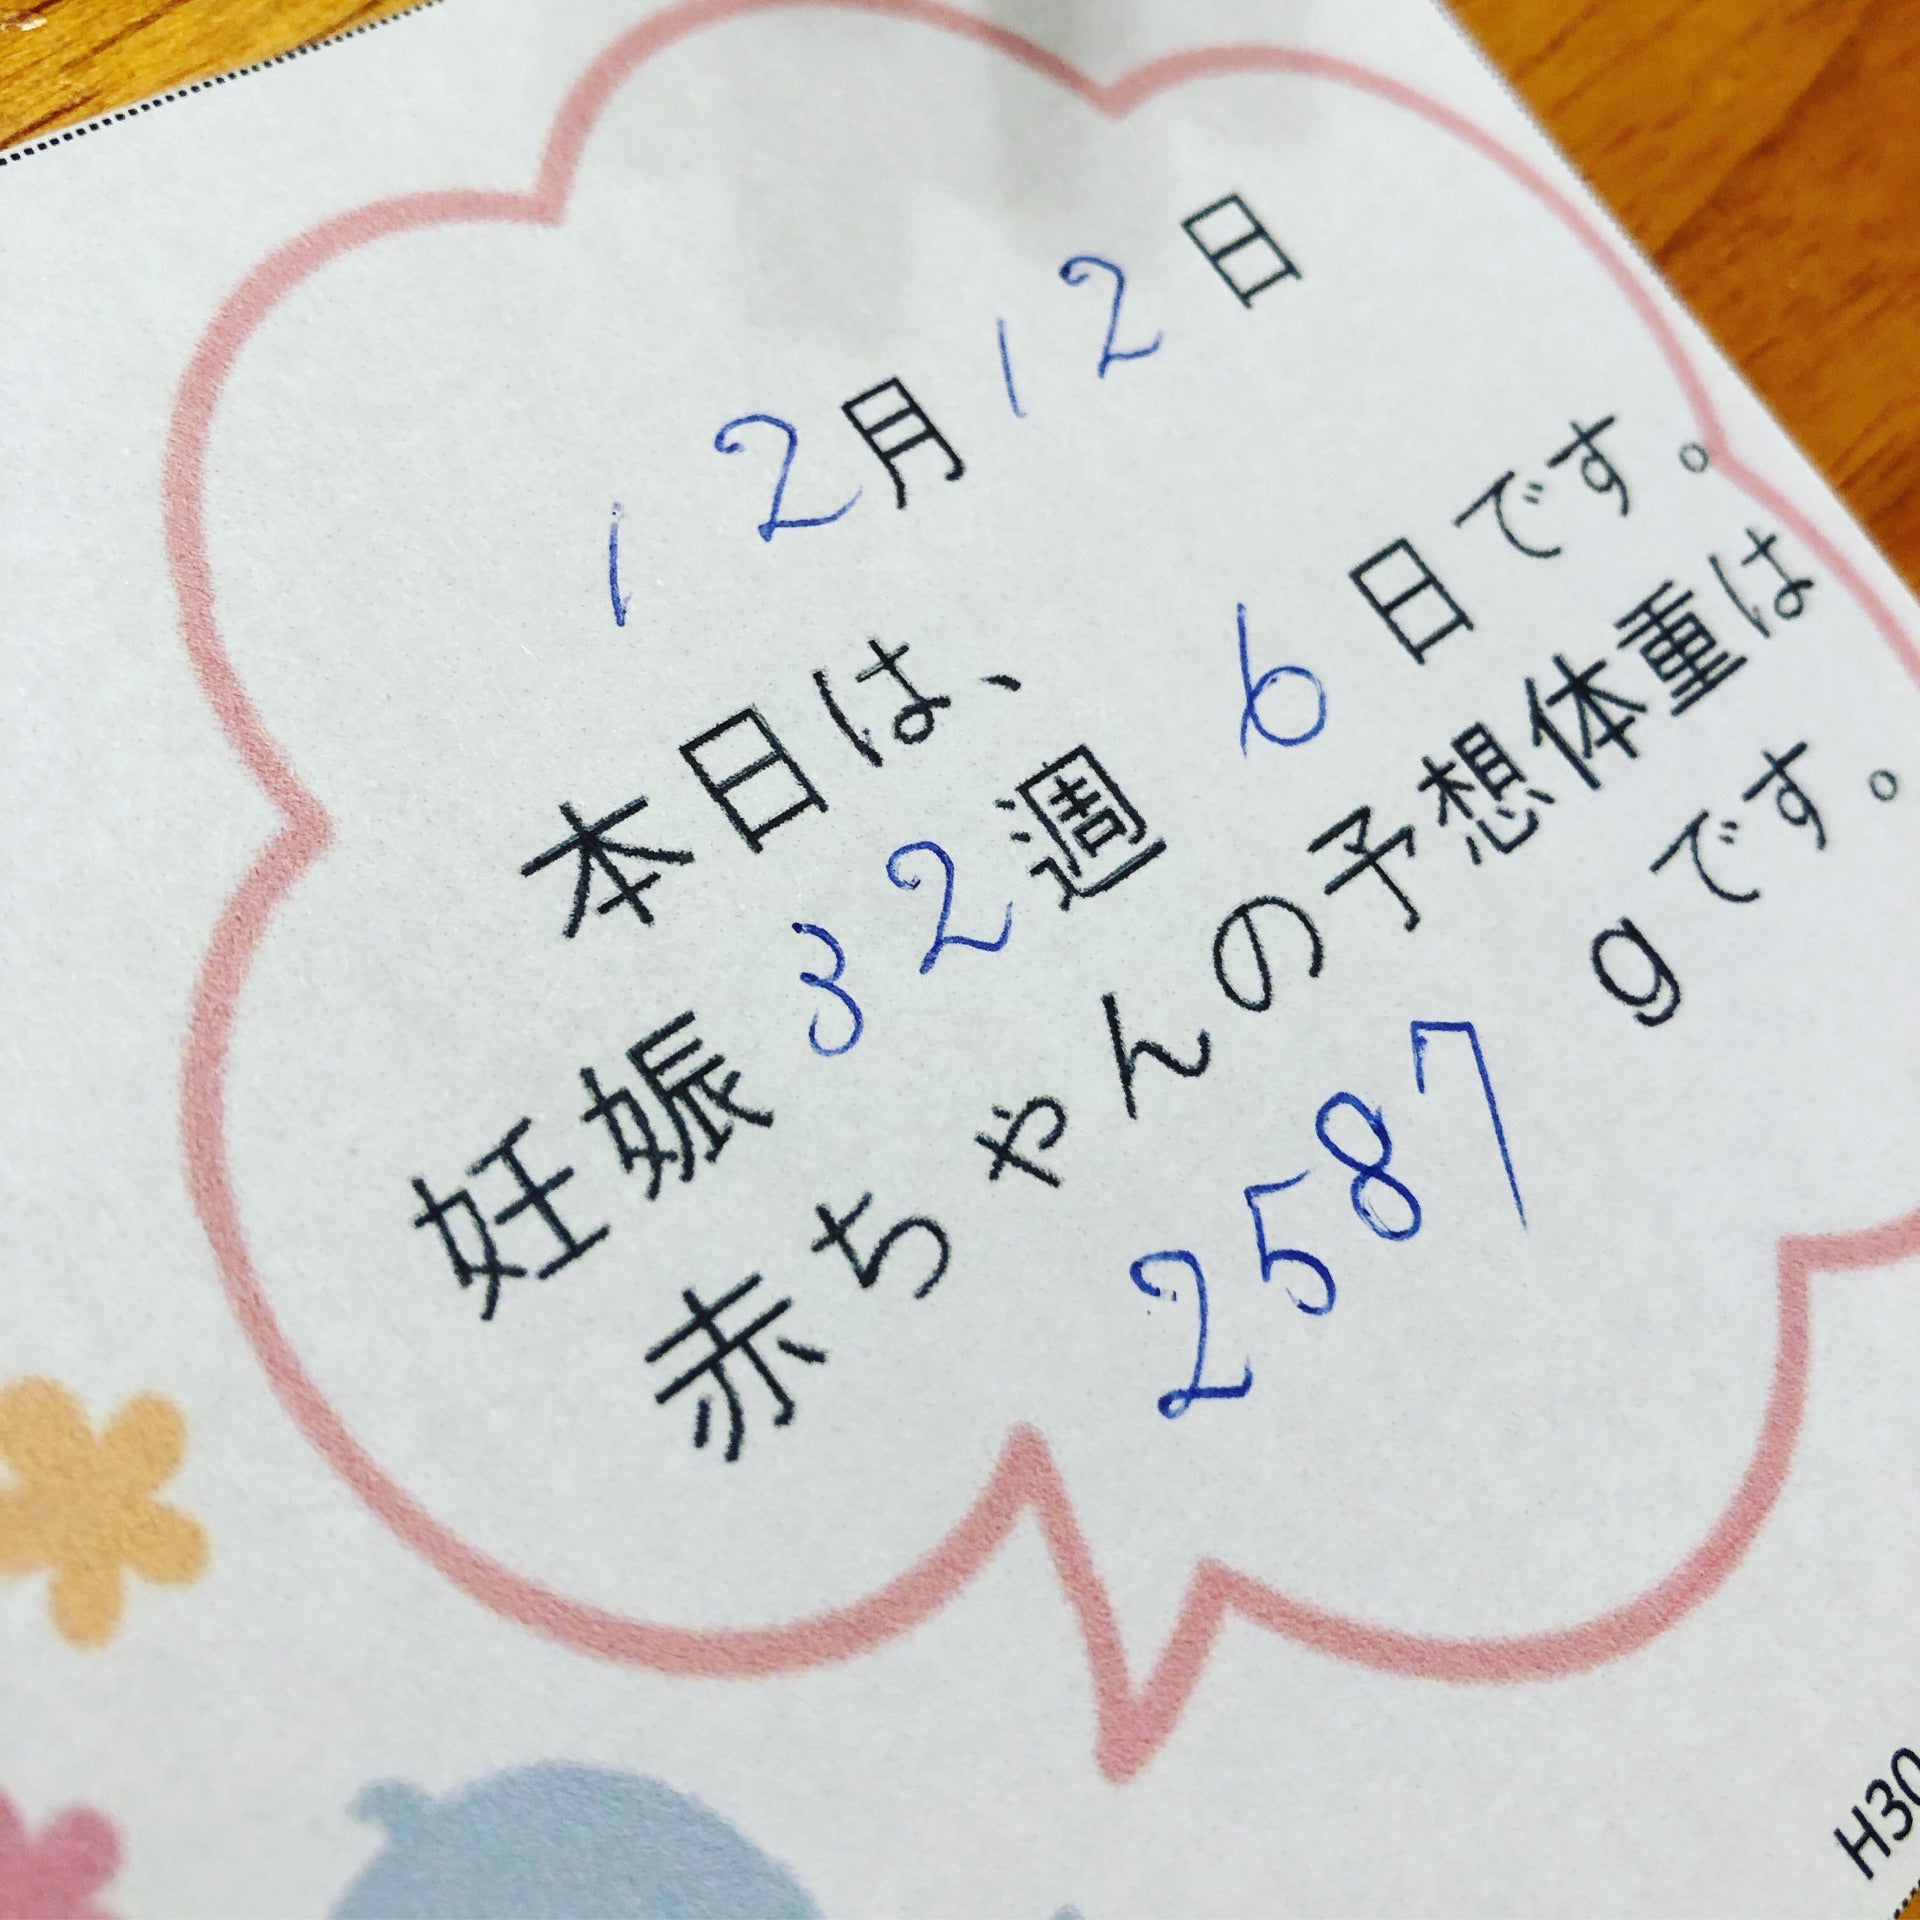 12月12日
本日は、
妊娠32週6日です。
赤ちゃんの予想体重は
2587gです。
H30